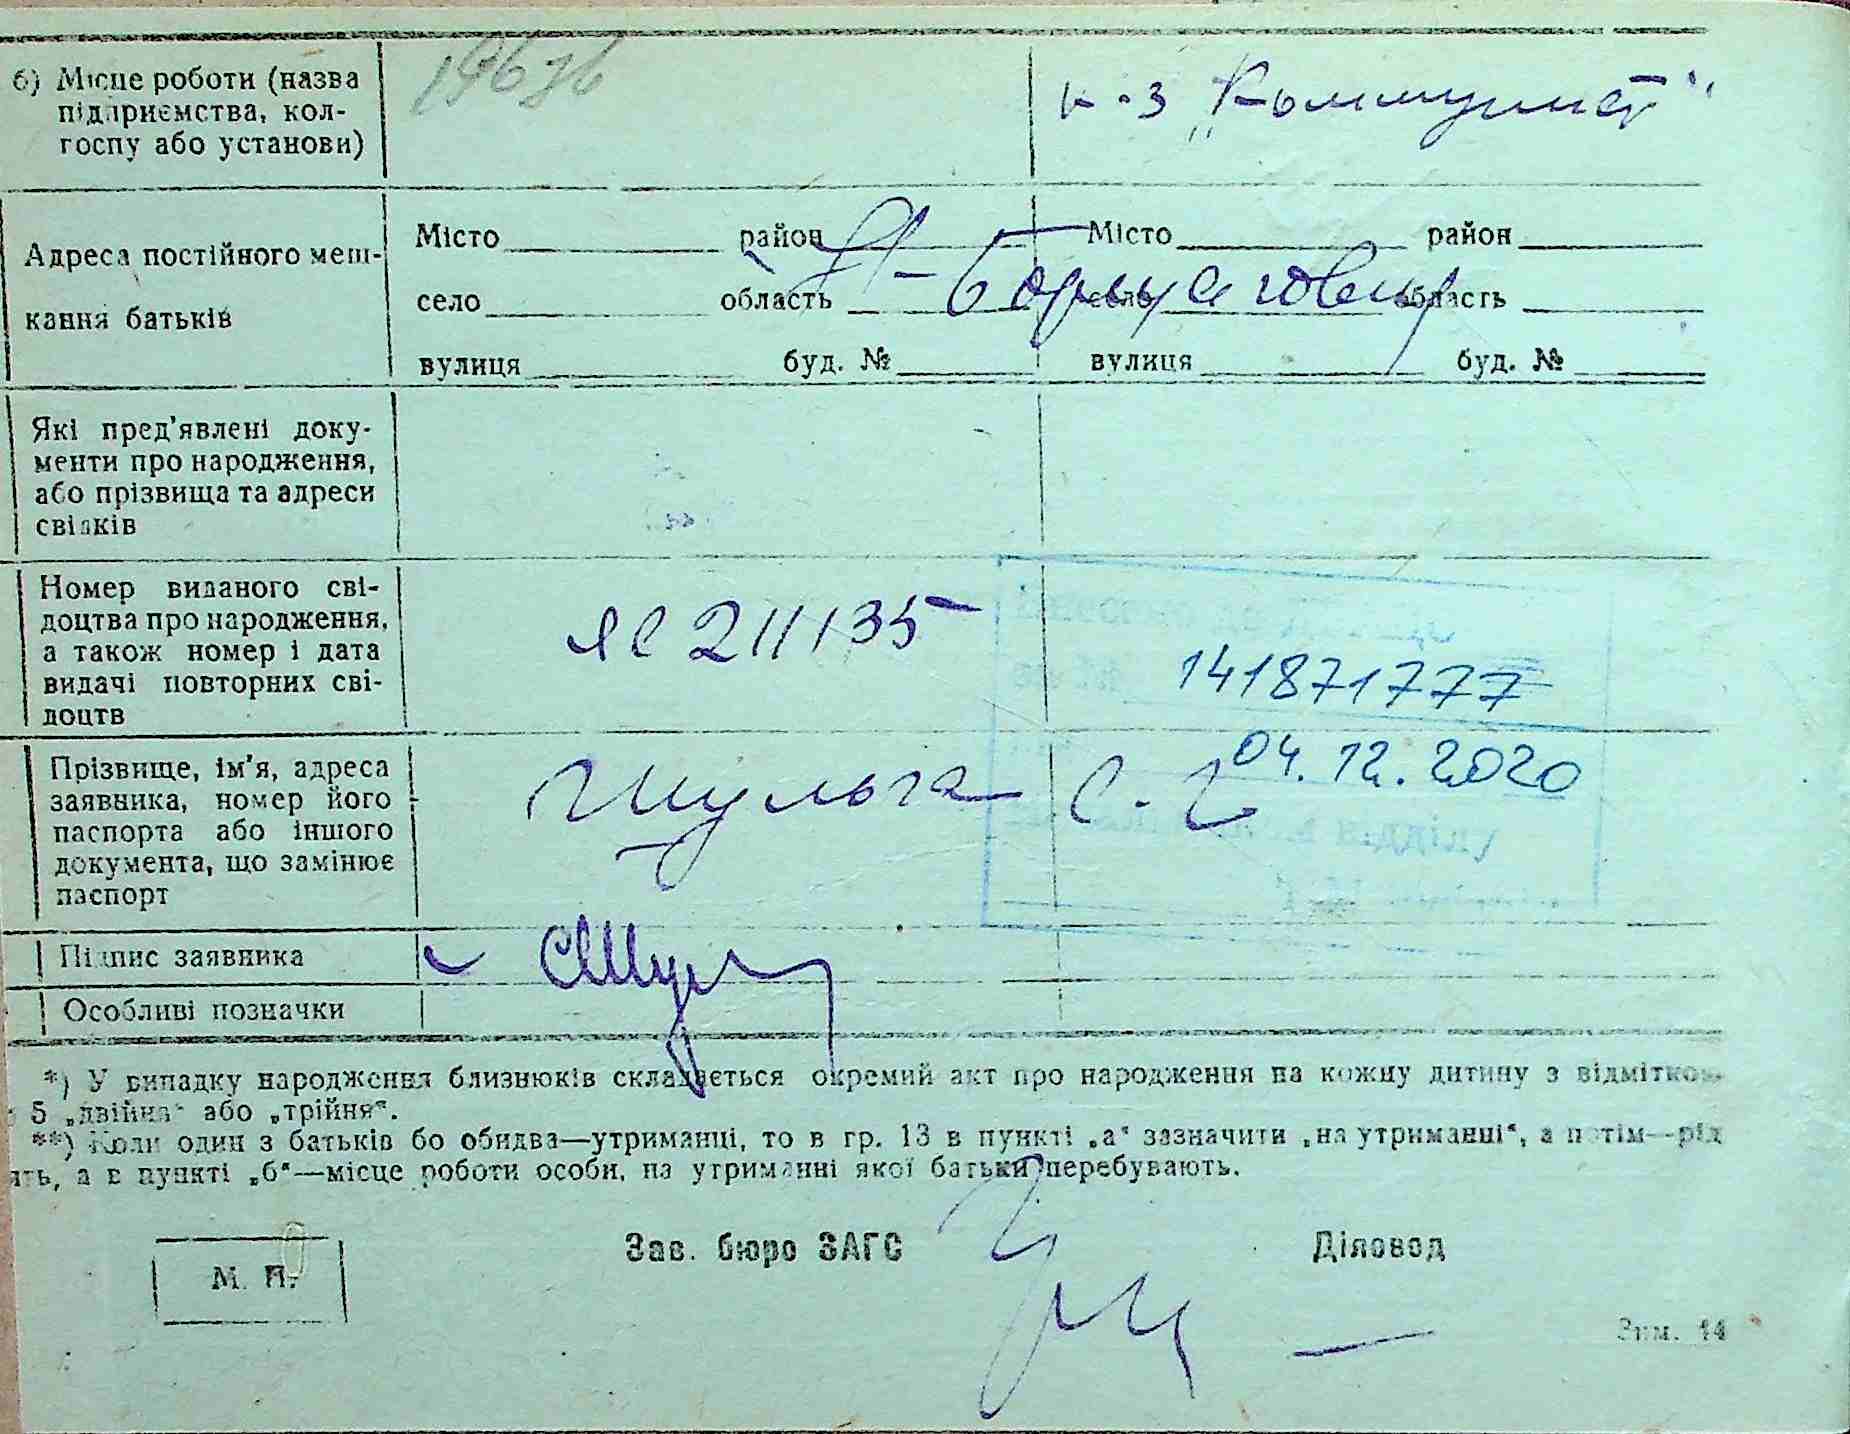 б) Місце роботи (назва
підприємства, кол-
госпу або установи)
к-з „Коммунист"
Адреса постійного меш-
кання батьків
Місто район Місто район
село область село область
вулиця буд. № вулиця буд. №
Які пред'явлені доку-
менти про народження,
або прізвища та адреси
свідків
Номер виданого сві-
доцтва про народження,
а також номер і дата
видачі повторних сві-
доцтв
ЯС 211135
141871777
04.12.2020
Прізвище, ім'я, адреса
заявника, номер його
паспорта або іншого
документа, що замінює
паспорт
Шульга С. Г
Підпис заявника
Особливі позначки
*) У випадку народження близнюків складається окремий акт про народження на кожну дитину з відміткою
5 „двійна" або „трійня".
**) Коли один з батьків бо обидва—утриманці, то в гр. 13 в пункті „а" зазначити „на утриманні", а потім—рід
ять, а в пункті „б"—місце роботи особи, на утриманні якої батьки перебувають.
Зав. бюро ЗАГС Діловод
М. П.
Зим. 14